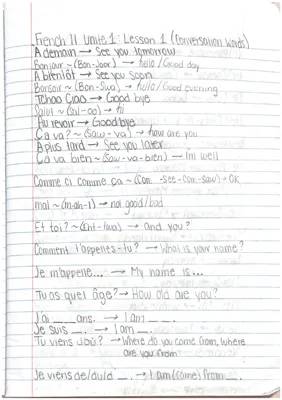 French 11 Unite 1: Lesson 1 (Conversation Words)
A demain → See you tomorrow
Bonjour ~ (Bon-Joor) → hello / Good day
A bientôt → See you soon
Bonsoir ~ (Bon-Swa) → hello / Good evening
Tchao Ciao → Good bye
Salut ~ → hi
Au revoir → Good bye
Ca va? ~ (Saw-va) → how are you
A plus tard → See you later
Ca va bien ~ (Saw-va-bien) → I'm well
Comme ci comme ça ~ (Com-see-com-saw) → OK
mal ~ → not good/bad
Et toi? ~ → and you?
Comment t'appelles-tu? → What is your name?
Je m'appelle... → My name is...
Tu as quel âge? → How old are you?
J'ai __ ans. → I am __.
Je suis __. → I am __.
Tu viens d'où? → Where do you come from, where
are you from
Je viens de/du/d' __. → I am (come) from __.